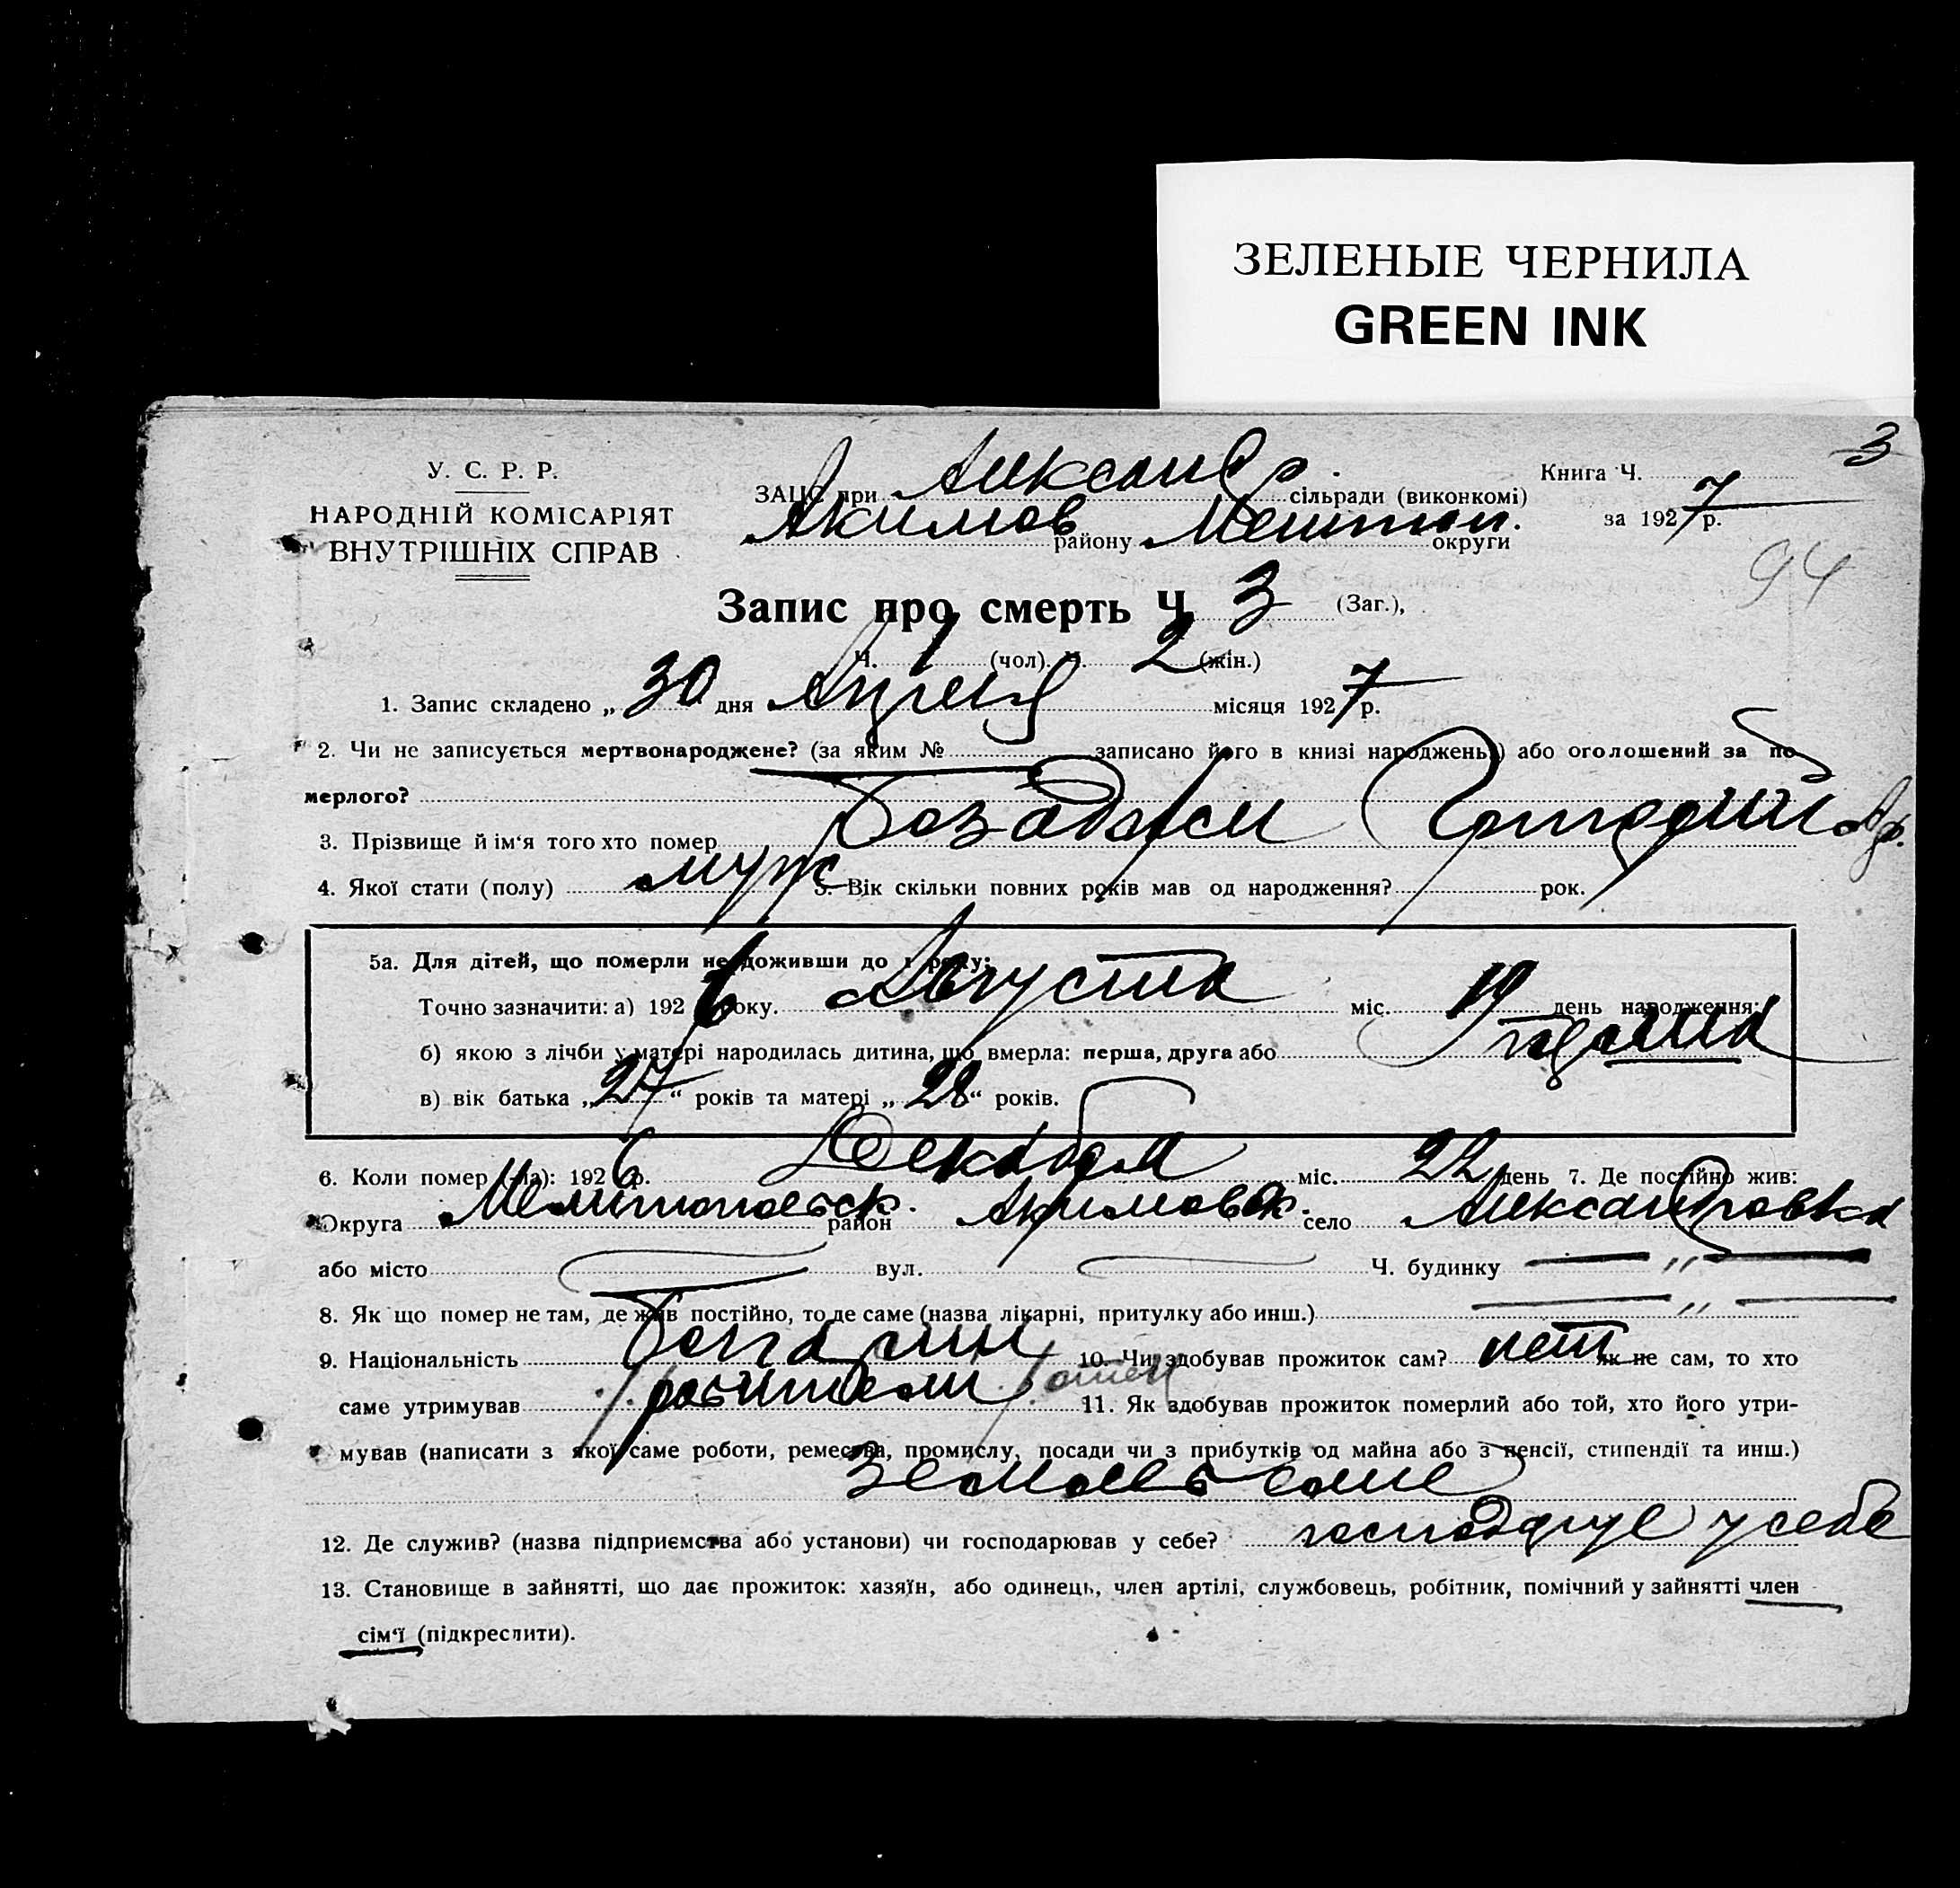 ЗЕЛЕНЫЕ ЧЕРНИЛА
GREEN INK
3
У. С. Р. Р.
НАРОДНІЙ КОМІСАРІЯТ
ВНУТРІШНІХ СПРАВ
ЗАЦС при Александр. сільради (виконкомі)
Акимов району Мелитоп. округи
Книга Ч.
за 1927 р.
94
Запис про смерть Ч 3 (Заг.),
Ч. 1 (чол). Ч. 2 (жін.)
1. Запис складено „30 дня Апреля місяця 1927 р.
2. Чи не записується мертвонароджене? (за яким № записано його в книзі народжень) або оголошений за по
мерлого?
3. Прізвище й ім‘я того хто помер Бозаджи Григорий
4. Якої стати (полу) муж 5. Вік скільки повних років мав од народження? рок.
5а. Для дітей, що померли не доживши до 1 року:
Точно зазначити: а) 1926 року. Августа міс. 19 день народження;
б) якою з лічби у матері народилась дитина, що вмерла: перша, друга або
в) вік батька „27“ років та матері „28“ років.
6. Коли помер (ла): 1926 р. Декабря міс. 22 день 7. Де постійно жив:
Округа Мелитопольск. район Акимовск. село Александровка
або місто вул. Ч. будинку — „ —
8. Як що помер не там, де жив постійно, то де саме (назва лікарні, притулку або инш.) — „ —
9. Національність Болгарин 10. Чи здобував прожиток сам? нет як не сам, то хто
саме утримував родители отец 11. Як здобував прожиток померлий або той, хто його утри-
мував (написати з якої саме роботи, ремества, промислу, посади чи з прибутків од майна або з пенсії, стипендії та инш.)
12. Де служив? (назва підприємства або установи) чи господарював у себе? господарує у себе
13. Становище в зайнятті, що дає прожиток: хазяїн, або одинець, член артілі, службовець, робітник, помічний у зайнятті член
сім‘ї (підкреслити).